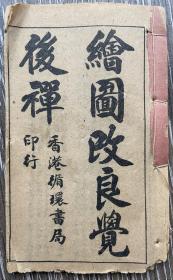 繪圖改良覺
後禪
香港循環書局
印行